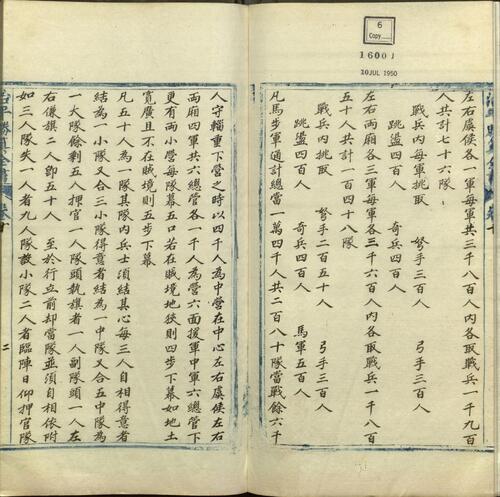 6
Copy
16001
20 JUL 1950
左右虞侯各一軍每軍共三千八百人內各取戰兵一千九百
人共計七十六隊
戰兵內每軍挑取　弩手三百人　弓手三百人
跳盪四百人　奇兵四百人
左右兩廂各三軍每軍各三千六百人內各取戰兵一千八百
五十人共計一百四十八隊
戰兵內挑取　弩手二百五十人　弓手三百人
跳盪四百人　奇兵四百人　馬軍五百人
凡馬步軍通計總當一萬四千人共二百八十隊當戰餘六千
人守輜重下營之時以四千人為中營在中心左右虞侯左右
兩廂四軍共六總管各一千人為營六面援軍中軍六總管下
更有兩小營每隊幕五口若在賊境地狹則四步下幕如地土
寬廣且不在賊境則五步下幕
凡五十人為一隊其隊內兵士須結其心每三人自相得意者
結為一小隊又合三小隊得意者結為一中隊又合五中隊為
一大隊餘剩五人押官一人隊頭執旗者一人副隊頭一人左
右傔旗二人即五十人　至於行立前却當隊並須自相依附
如三人隊失一人者九人隊救小隊二人者臨陣日仰押官隊
卷十
二